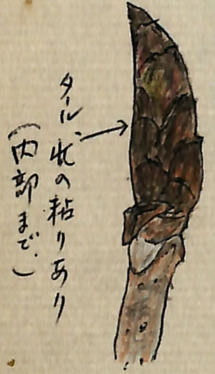 タール状の粘りあり
(内部まで。)